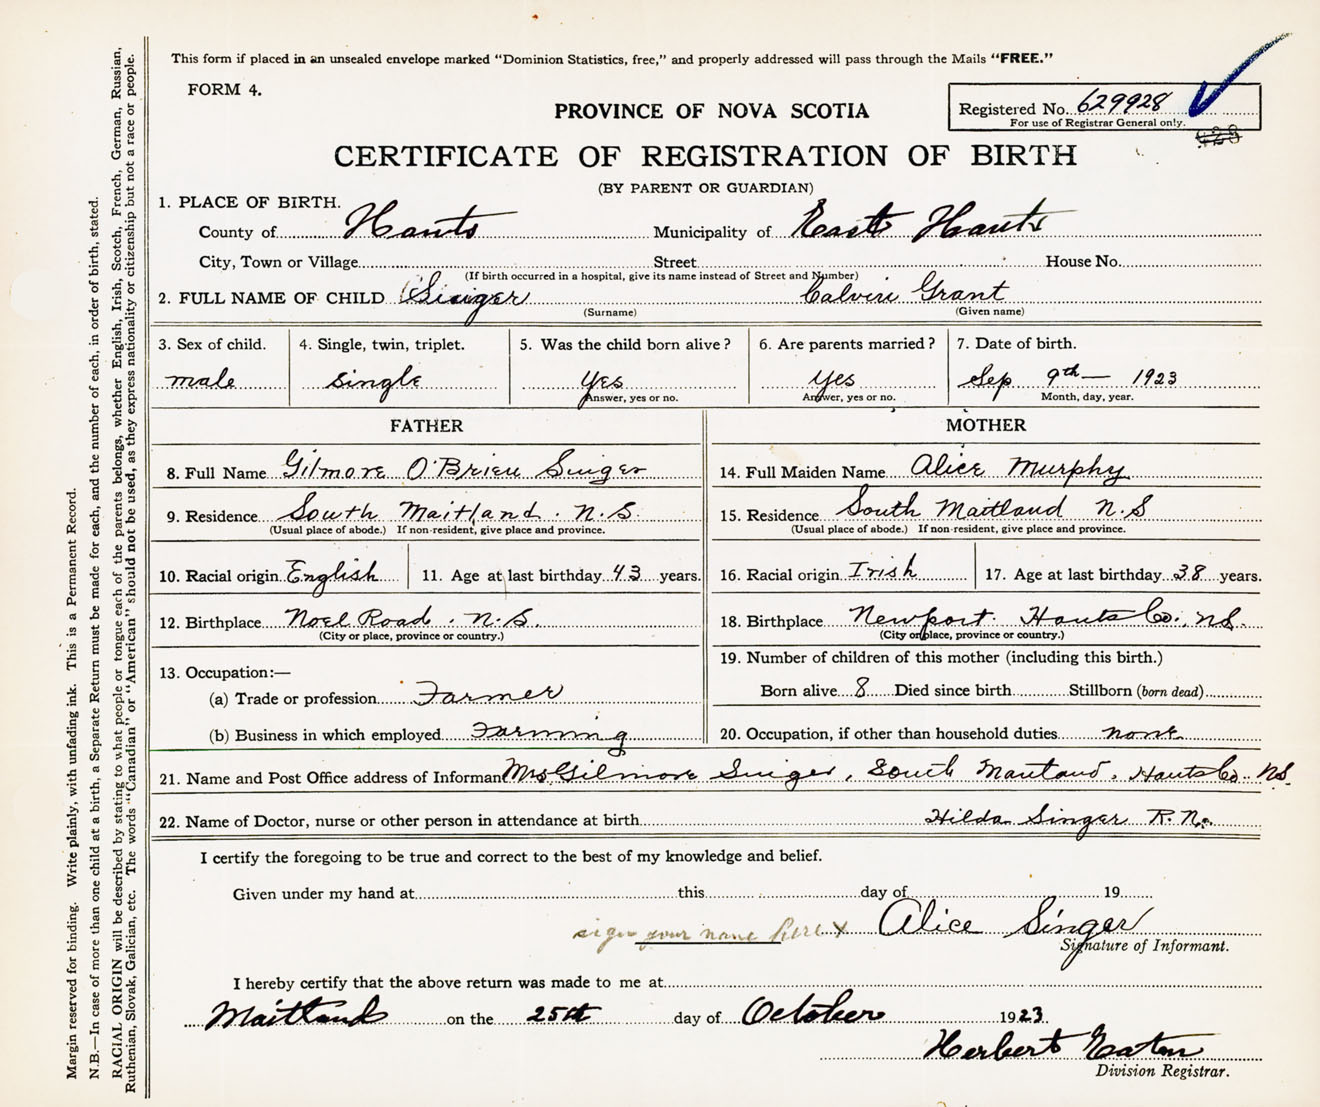 This form if placed in an unsealed envelope marked "Dominion Statistics, free," and properly addressed will pass through the Mails "FREE."
FORM 4.
PROVINCE OF NOVA SCOTIA
Registered No. 629928
For use of Registrar General only.
CERTIFICATE OF REGISTRATION OF BIRTH
(BY PARENT OR GUARDIAN)
1. PLACE OF BIRTH.
County of Hants Municipality of East Hants
City, Town or Village Street House No.
(If birth occurred in a hospital, give its name instead of Street and Number)
2. FULL NAME OF CHILD Singer Calvin Grant
(Surname) (Given name)
3. Sex of child. 4. Single, twin, triplet. 5. Was the child born alive? 6. Are parents married? 7. Date of birth.
male single Yes Yes Sep 9th 1923
Answer, yes or no. Answer, yes or no. Month, day, year.
FATHER MOTHER
8. Full Name Gilmore O'Brien Singer 14. Full Maiden Name Alice Murphy
9. Residence South Maitland. N.S. 15. Residence South Maitland N.S
(Usual place of abode.) If non-resident, give place and province. (Usual place of abode.) If non-resident, give place and province.
10. Racial origin English 11. Age at last birthday 43 years. 16. Racial origin Irish 17. Age at last birthday 38 years.
12. Birthplace Noel Road. N.S. 18. Birthplace Newport Hants Co., N.S.
(City or place, province or country.) (City or place, province or country.)
13. Occupation:— 19. Number of children of this mother (including this birth.)
(a) Trade or profession Farmer Born alive 8 Died since birth Stillborn (born dead)
(b) Business in which employed Farming 20. Occupation, if other than household duties none
21. Name and Post Office address of Informant Mrs Gilmore Singer, South Maitland, Hants Co. N.S.
22. Name of Doctor, nurse or other person in attendance at birth Hilda Singer R.N.
I certify the foregoing to be true and correct to the best of my knowledge and belief.
Given under my hand at this day of 19
sign your name here x Alice Singer
Signature of Informant.
I hereby certify that the above return was made to me at
Maitland on the 25th day of October 1923
Herbert Eaton
Division Registrar.
Margin reserved for binding. Write plainly, with unfading ink. This is a Permanent Record.
N.B.—In case of more than one child at a birth, a Separate Return must be made for each, and the number of each, in order of birth, stated.
RACIAL ORIGIN will be described by stating to what people or tongue each of the parents belongs, whether English, Irish, Scotch, French, German, Russian,
Ruthenian, Slovak, Galician, etc. The words "Canadian" or "American" should not be used, as they express nationality or citizenship but not a race or people.